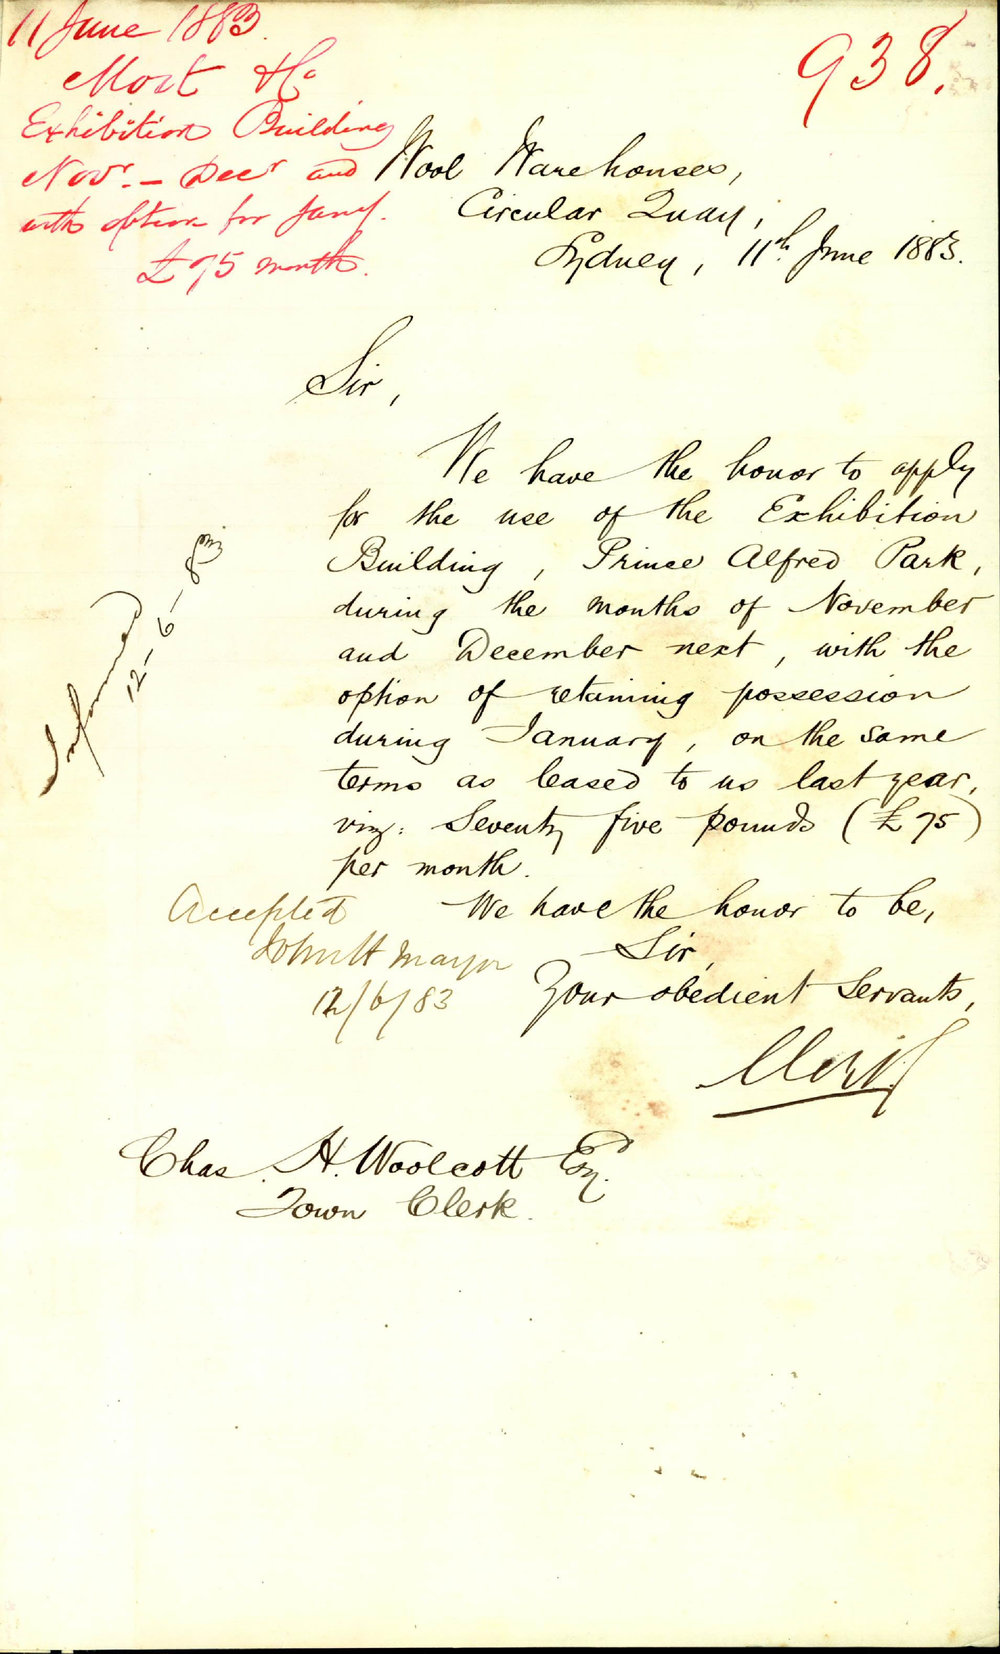 11 June 1883.
Mort & Co
Exhibition Building
Novr. – Decr and
with option for Jany.
£75 month.
938.
Wool Warehouses,
Circular Quay,
Sydney, 11th June 1883.
Sir,
We have the honor to apply
for the use of the Exhibition
Building, Prince Alfred Park,
during the months of November
and December next, with the
option of retaining possession
during January, on the same
terms as leased to us last year,
viz: Seventy five pounds (£75)
per month.
We have the honor to be,
Sir,
Your obedient Servants,
Informed
12-6-83.
Accepted
Mayor
12/6/83
Chas. H. Woolcott Esq.
Town Clerk.